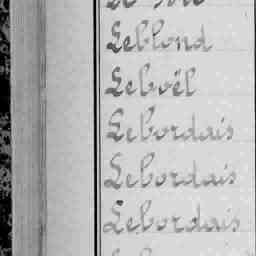 Leblond
Leboël
Lebordais
Lebordais
Lebordais